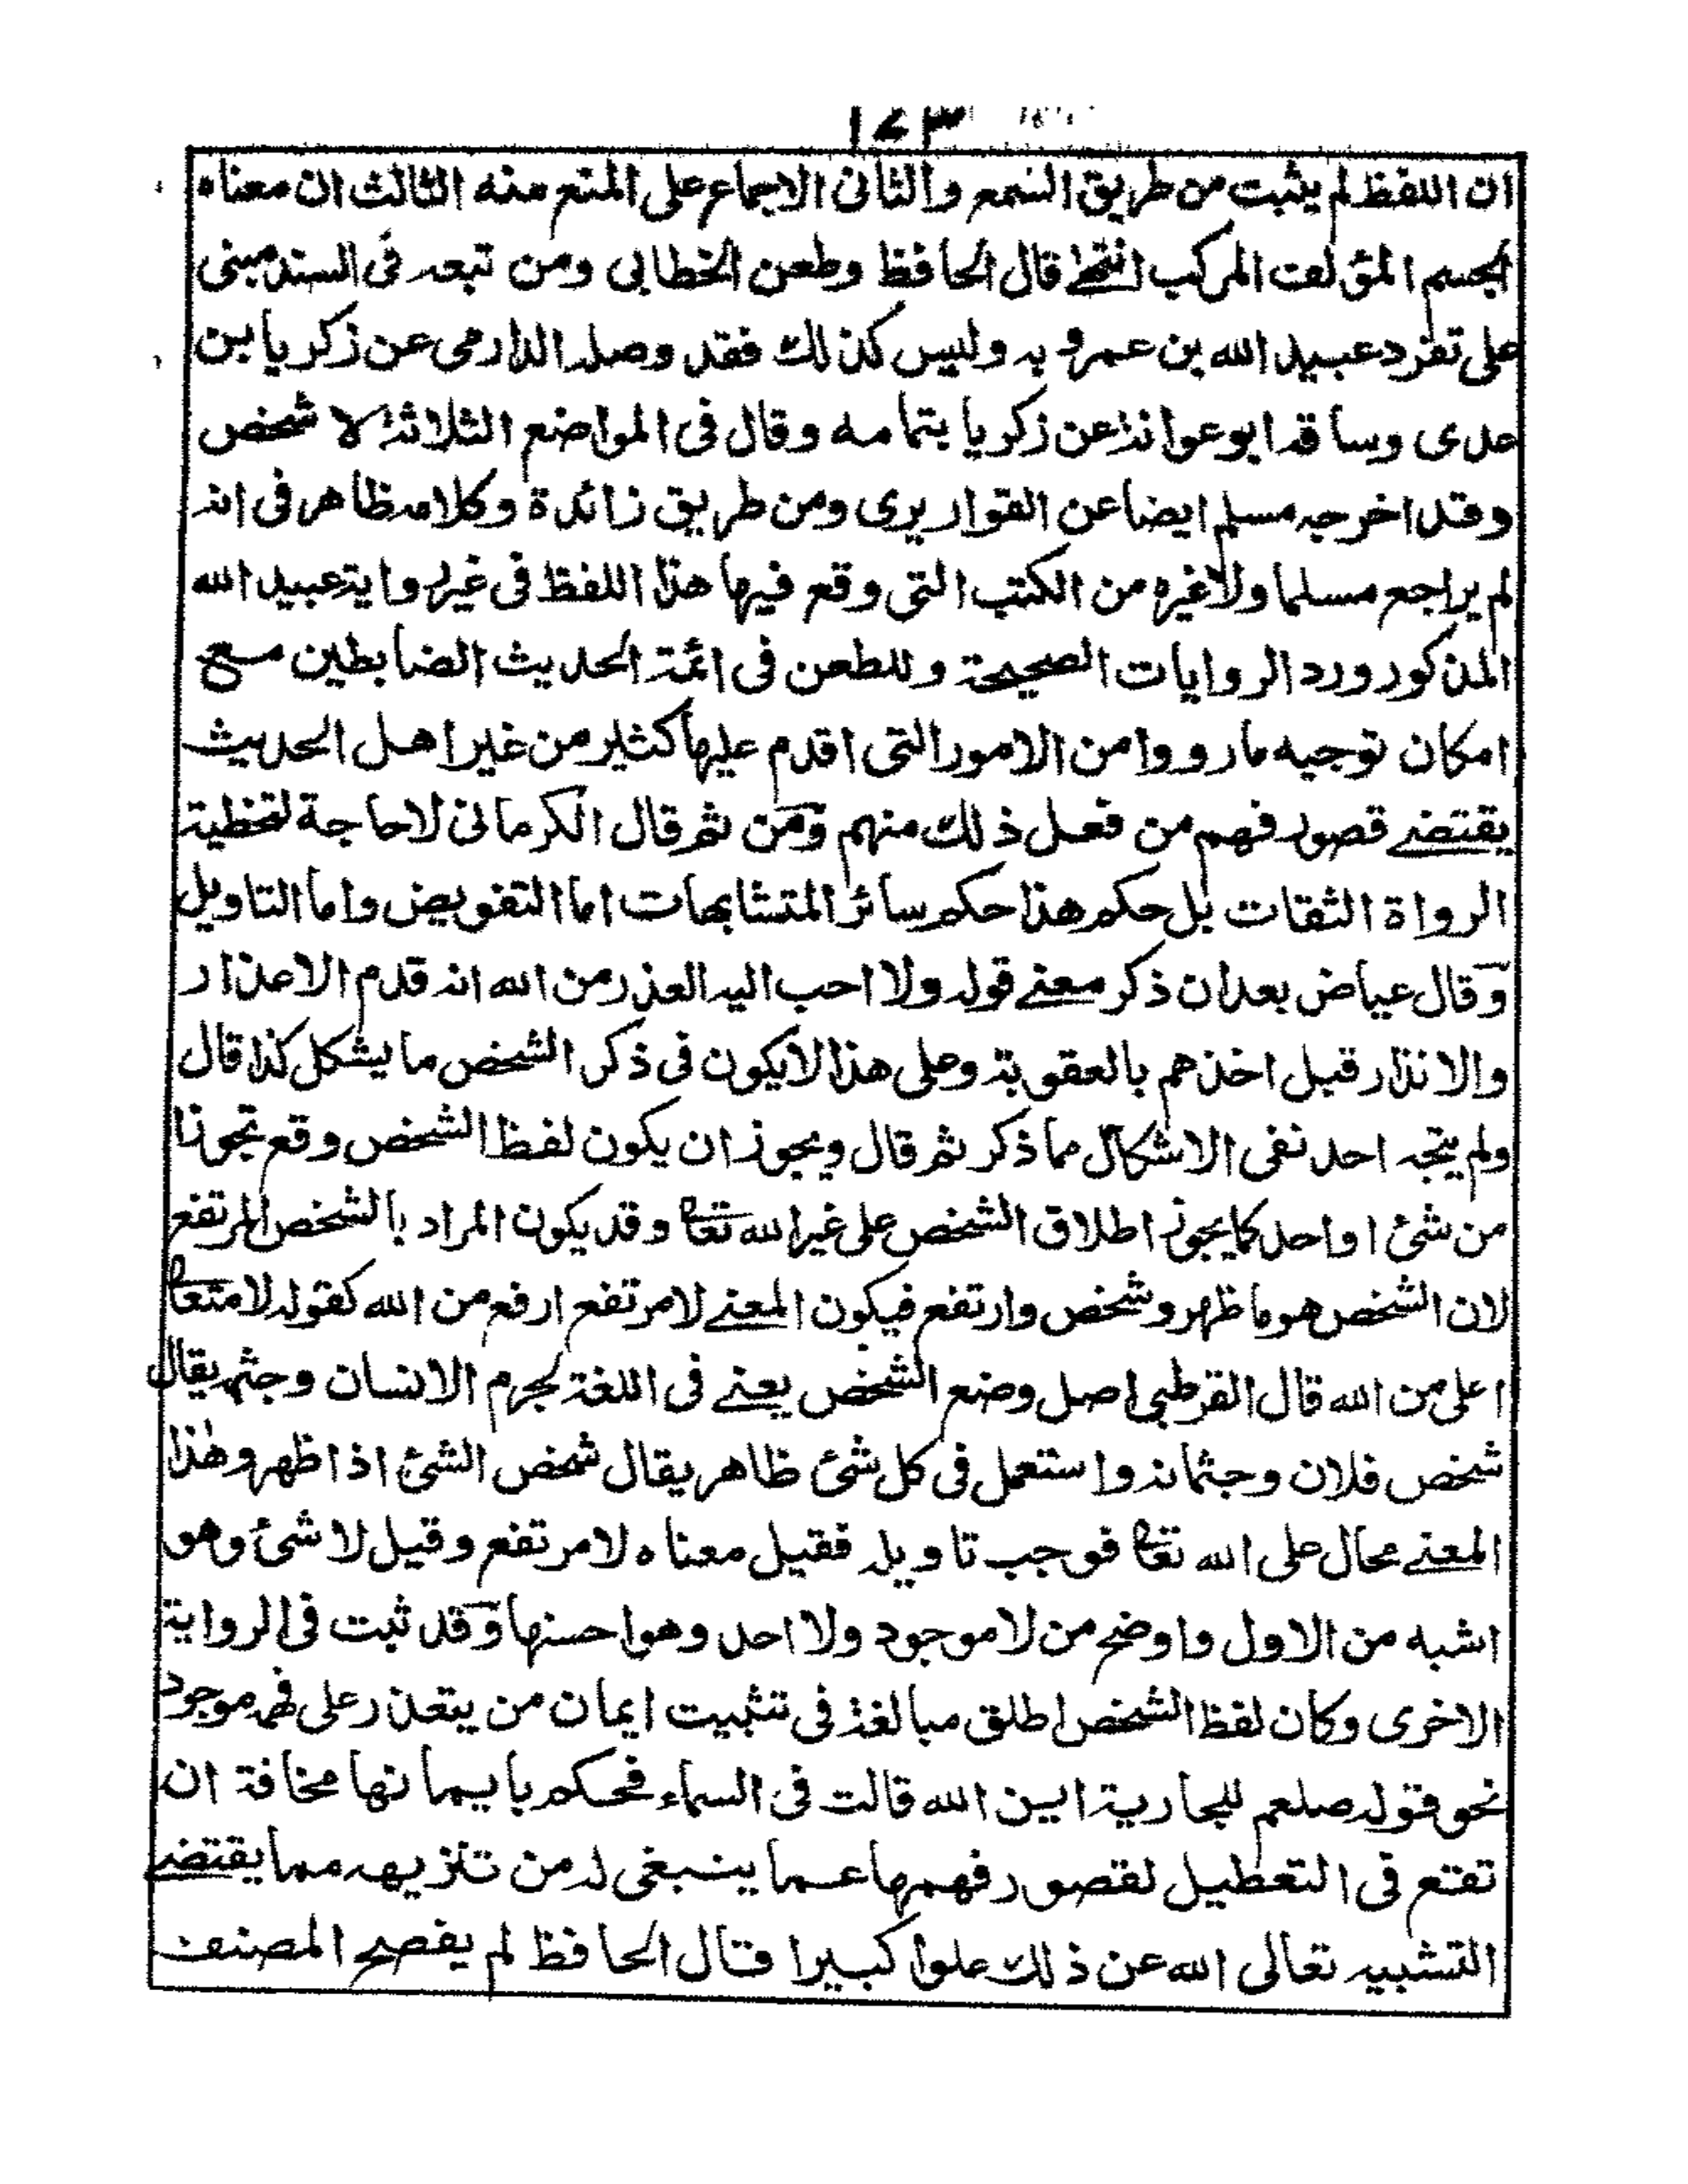 ١٧٣
ان اللفظ لم يثبت من طريق السمع والثانى الاجماع على المنع منه الثالث ان معناه
الجسم المؤلف المركب انتهى قال الحافظ وطعن الخطابى ومن تبعه فى السند مبنى
على تفرد عبيد الله بن عمرو به وليس كذلك فقد وصله الدارمى عن زكريا بن
عدى وساقه ابو عوانة عن زكريا بتمامه وقال فى المواضع الثلاثة لا شخص
وقد اخرجه مسلم ايضا عن القواريرى ومن طريق زائدة وكلامه ظاهر فى انه
لم يراجع مسلما ولا غيره من الكتب التى وقع فيها هذا اللفظ فى غير رواية عبيد الله
المذكور ورد الروايات الصحيحة وللطعن فى ائمة الحديث الضابطين مع
امكان توجيه ما رووا من الامور التى اقدم عليها كثير من غير اهل الحديث
يقتضے قصور فهم من فعل ذلك منهم ومن ثم قال الكرمانى لا حاجة لتخطية
الرواة الثقات بل حكم هذا حكم سائر المتشابهات اما التفويض واما التاويل
وقال عياض بعد ان ذكر معنے قوله ولا احب اليه العذر من الله انه قدم الاعذار
والانذار قبل اخذهم بالعقوبة وعلى هذا لا يكون فى ذكر الشخص ما يشكل كذا قال
ولم يتجه احد نفى الاشكال مما ذكر ثم قال ويجوز ان يكون لفظ الشخص وقع تجوزا
من شئ او احد كما يجوز اطلاق الشخص على غير الله تعالى وقد يكون المراد بالشخص المرتفع
لان الشخص هو ما ظهر وشخص وارتفع فيكون المعنے لا مرتفع ارفع من الله كقوله لا متعالى
اعلى من الله قال القرطبى اصل وضع الشخص يعنے فى اللغة لجرم الانسان وجثمه يقال
شخص فلان وجثمانه واستعمل فى كل شئ ظاهر يقال شخص الشئ اذا ظهر وهذا
المعنے محال على الله تعالى فوجب تاويله فقيل معناه لا مرتفع وقيل لا شئ وهو
اشبه من الاول واوضح من لا موجود ولا احد وهو احسنها وقد ثبت فى الرواية
الاخرى وكان لفظ الشخص اطلق مبالغة فى تثبيت ايمان من يتعذر على فهمه موجود
نحو قوله صلعم للجارية اين الله قالت فى السماء فحكم بايمانها مخافة ان
تقع فى التعطيل لقصور فهمها عما ينبغى له من تنزيهه مما يقتضے
التشبيه تعالى الله عن ذلك علوا كبيرا قال الحافظ لم يفصح المصنف